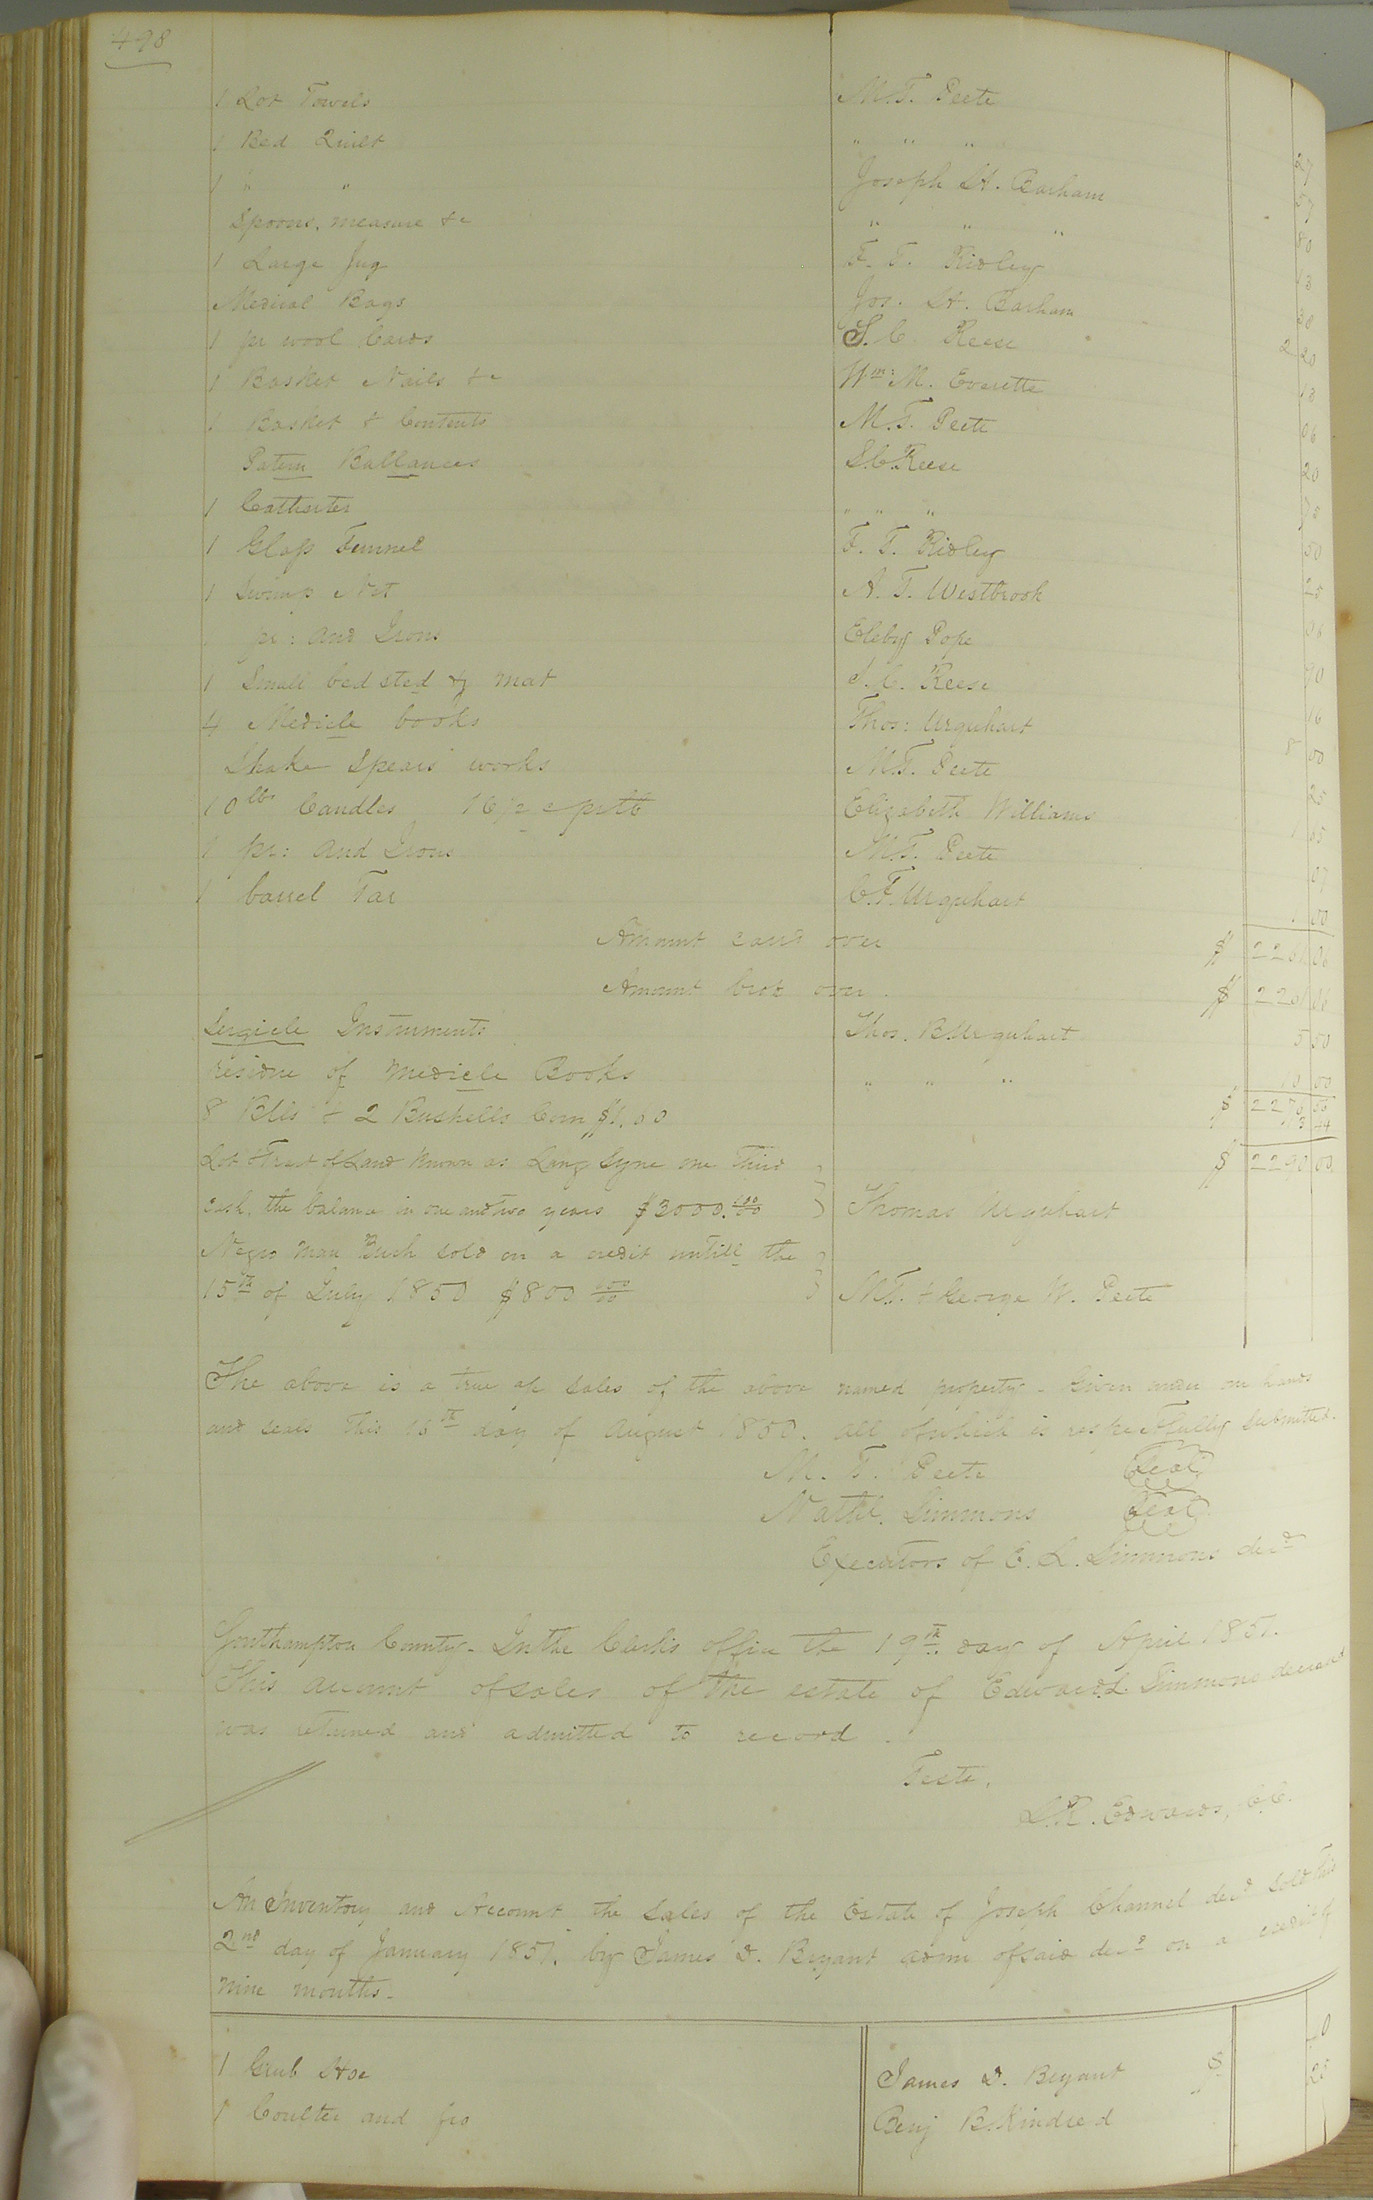 498
1 Lot Towels M.T. Peete
1 Bed Quilt " " " 27
1 " " Joseph H. Barham 57
Spoons, measure &c " " " 80
1 Large Jug F. T. Ridley 13
Medical Bags Jos. H. Barham 38
1 pr wool Cards S. C. Reese 2 20
1 Basket Nails &c Wm: M. Everette 13
1 Basket & Contents M.T. Peete 06
Patern Ballances S.C. Reese 20
1 Catheiter " " " 75
1 Glass Funnel F. T. Ridley 50
1 Swimp Net A. T. Westbrook 25
pr: And Irons Eleby Pope 08
1 Small bed sted & mat S.C. Reese 90
4 Medicle books Thos: Urquhart 16
Shake Spears works M.T. Peete 8 00
10 lbs Candles 16½ c pr lb Elizabeth Williams 25
1 pr: And Irons M.T. Peete 1 65
1 barrel Tar C. F. Urquhart 07
1 00
Amount card over $ 2261 06
Amount brot over. $ 2261 06
Surgicle Instruments Thos. B. Urquhart 5 50
residue of Medicle Books " " " 10 00
8 Blls & 2 Bushells Corn $1.00 $ 2276 56
13 44
Lot & Tract of Land known as Lang Syne one third $ 2290 00
cash, the balance in one and two years $3000.00/100 Thomas Urquhart
Negro Man Buck sold on a credit untill the
15th of July 1850 $800 00/100 M.T. & George W. Peete
The above is a true a/c sales of the above named property. Given under our hands
and seals this 15th day of August 1850. All of which is respectfully submitted.
M. T. Peete Seal
Nathl. Simmons Seal
Executors of E. L. Simmons decd
Southampton County. In the Clerks office the 19th day of April 1851.
This account of sales of the estate of Edward L. Simmons deceased
was returned and admitted to record.
Teste,
L.R. Edwards, C.C.
An Inventory and Account the Sales of the Estate of Joseph Channel decd sold this
2nd day of January 1851, by James D. Bryant admr of said decd on a credit of
nine months.
1 Grub Hoe James D. Bryant $
1 Coulter and fro Benj B. Kindred 25